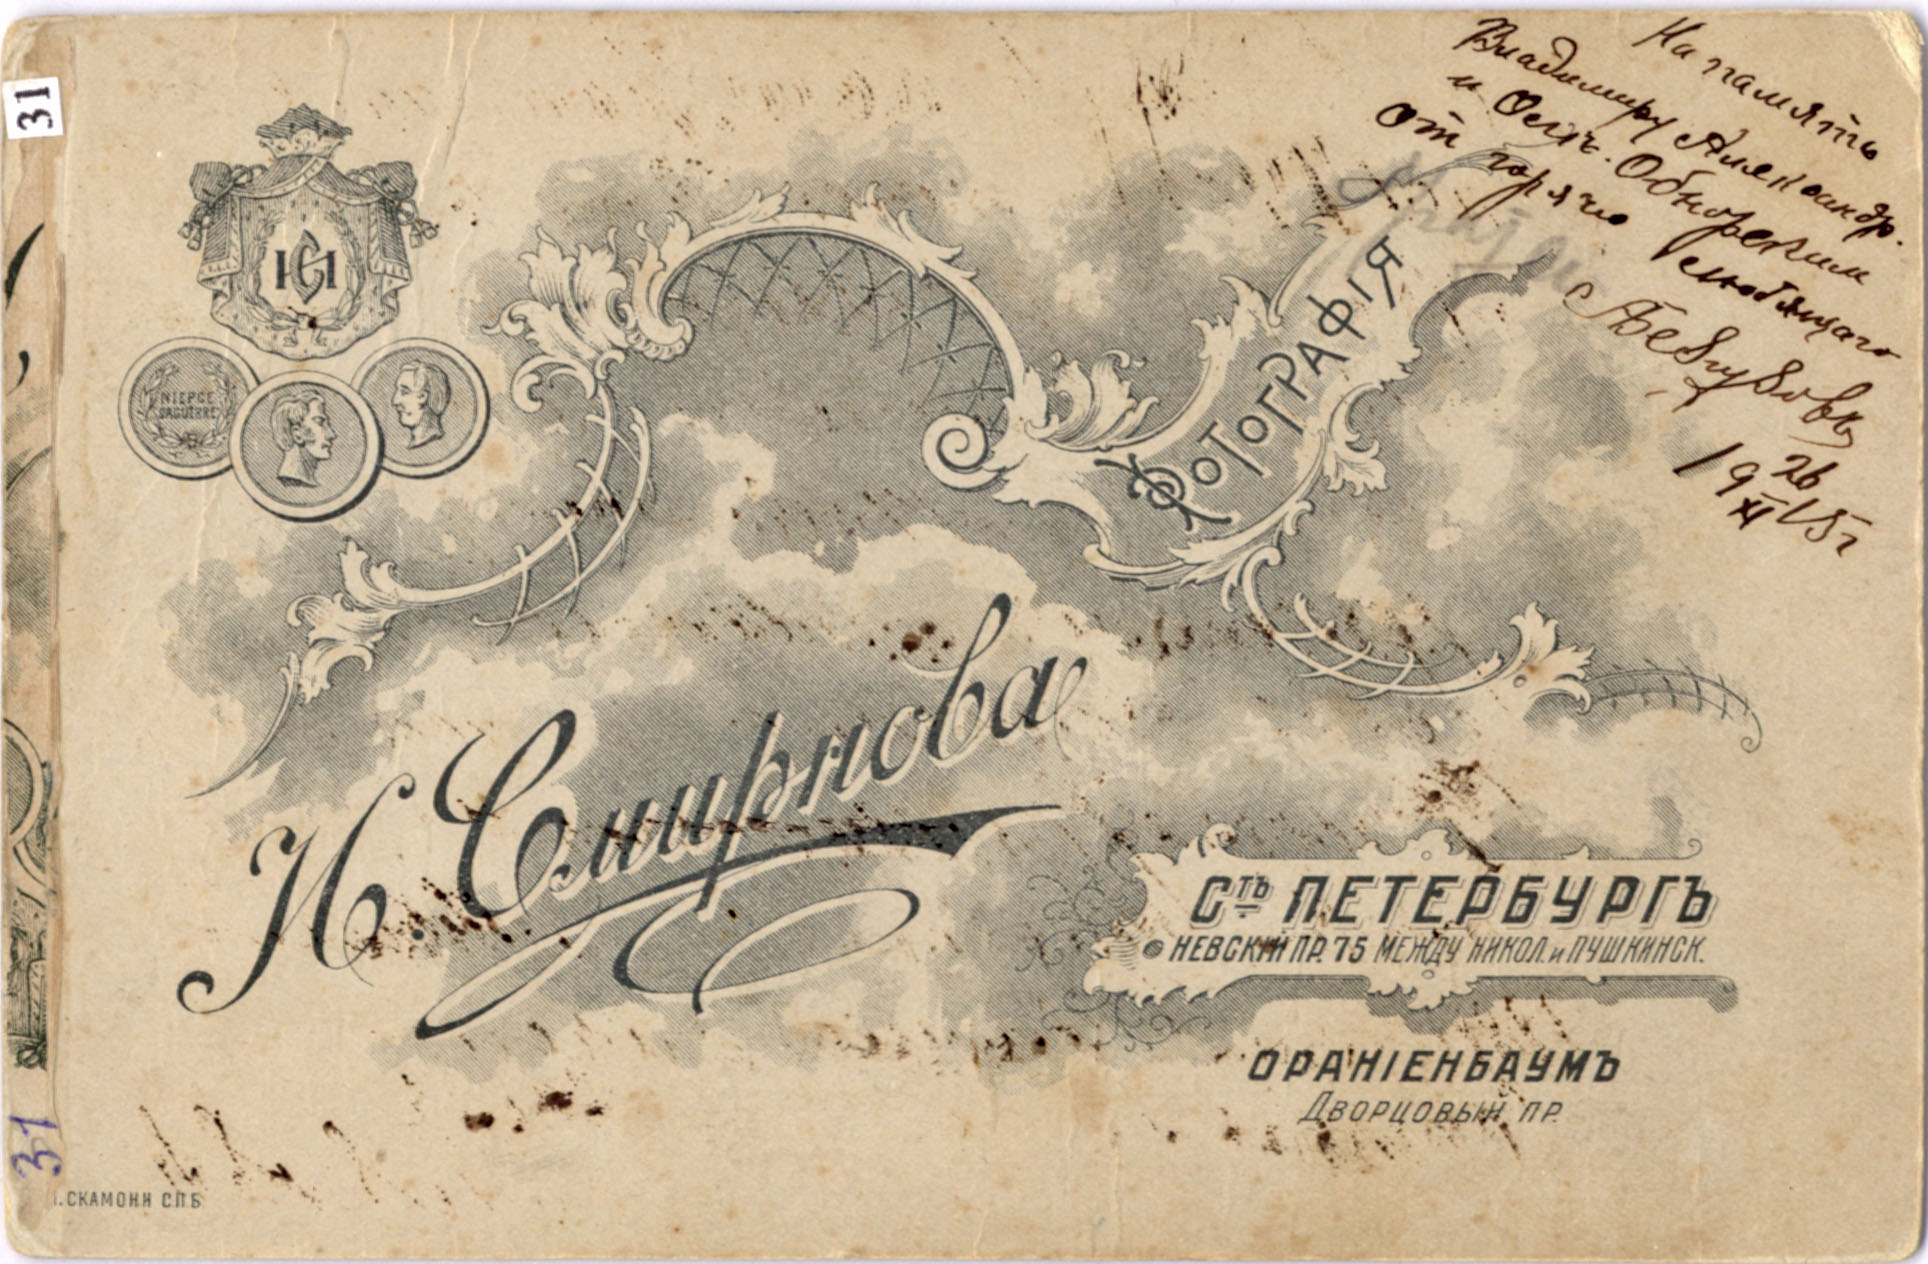 31
На память
Владимиру Александр.
и Ольг. Обнорским
от горячо любящаго
26
19 15 г
XI
НСИ
NIEPCE
DAGUERRE
Фотографія
Н. Смирнова
Стъ ПЕТЕРБУРГЪ
НЕВСКІЙ ПР. 75 МЕЖДУ НИКОЛ. и ПУШКИНСК.
ОРАНІЕНБАУМЪ
ДВОРЦОВЫЙ ПР.
31
СКАМОНИ СПБ